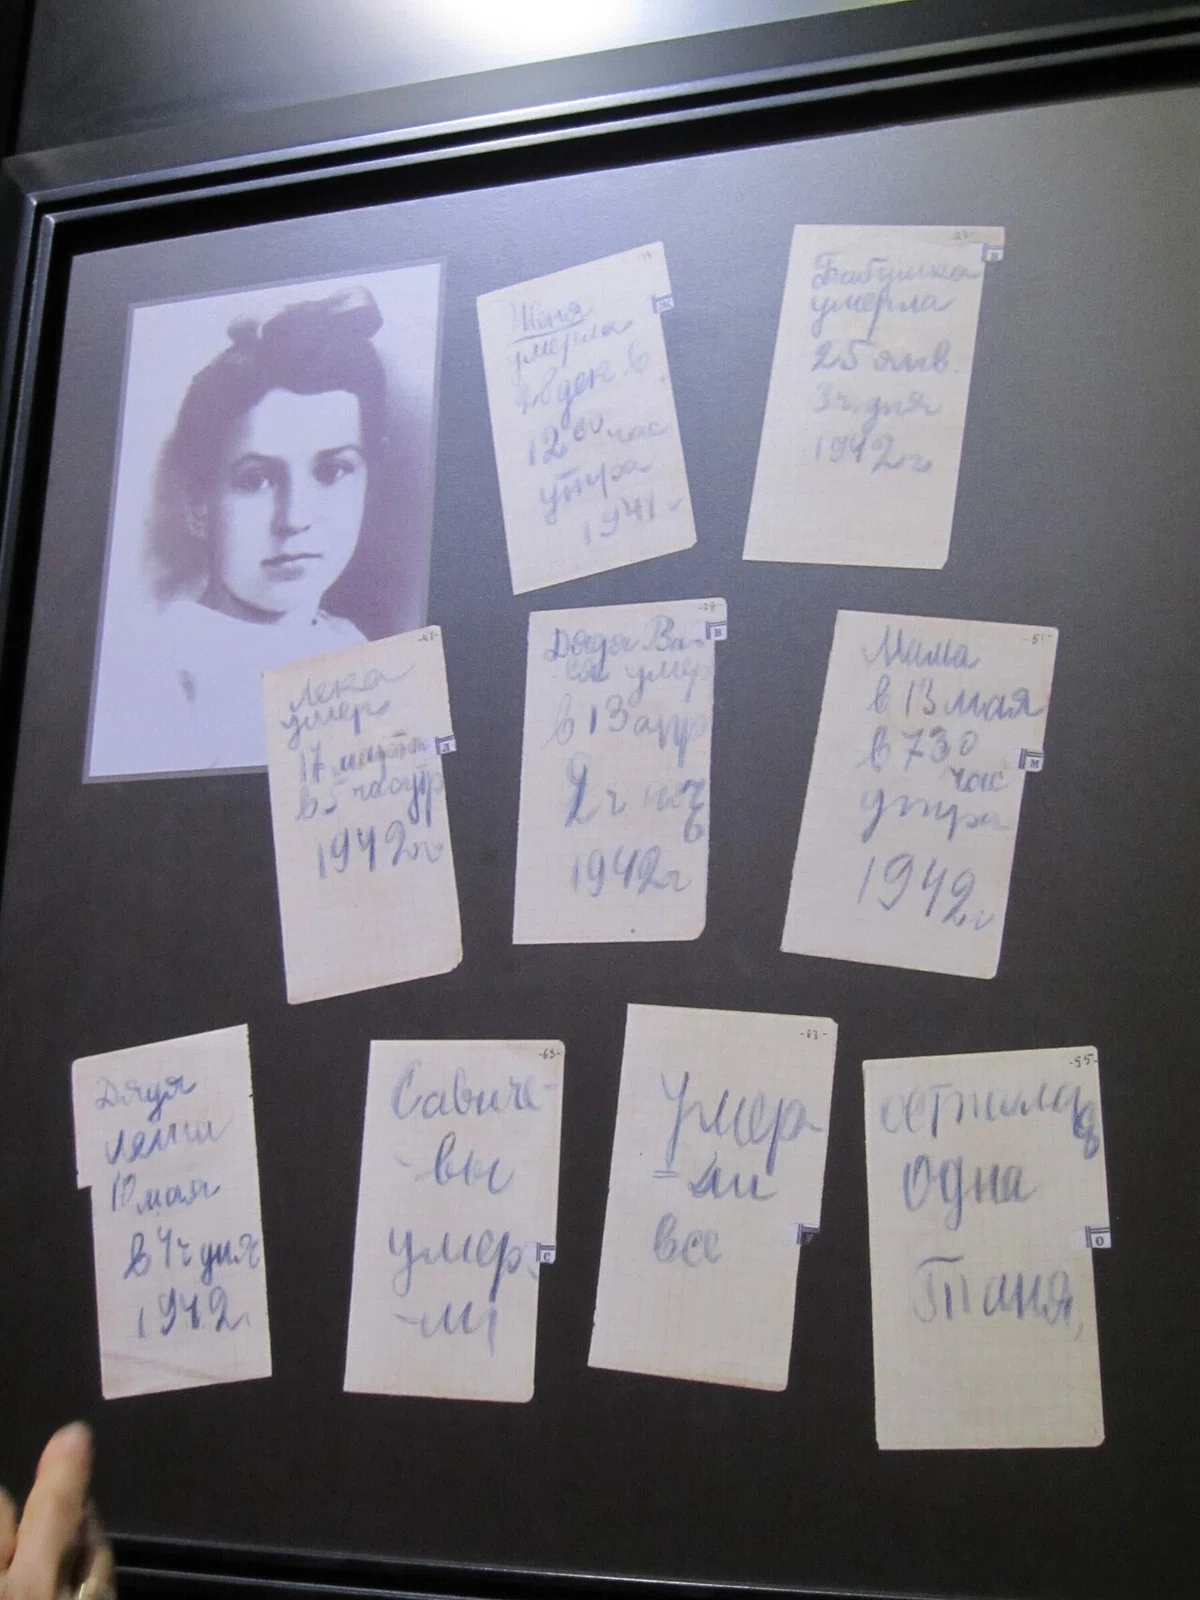 Женя
умерла
28 дек в
12 00 час
утра
1941 г
-27-
Бабушка
умерла
25 янв.
3 ч. дня
1942 г.
-47-
Лека
умер
17 марта
в 5 час утр
1942 г
Л
-29-
Дядя Ва-
ся умер
в 13 апр
2 ч ночь
1942 г
В
-51-
Мама
в 13 мая
в 7 30
час
утра
1942 г
М
Дядя
Леша
10 мая
в 4 ч дня
1942
-63-
Савиче-
-вы
умер-
-ли
С
Умер
= ли
все
-55-
осталась
одна
Таня,
О